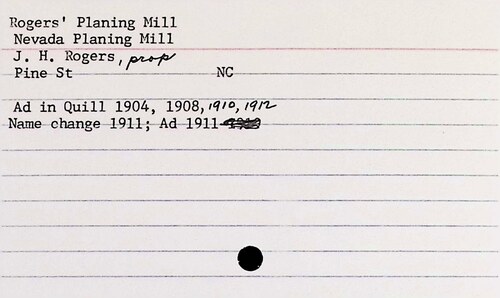 Rogers' Planing Mill
Nevada Planing Mill
J. H. Rogers, prop
Pine St NC
Ad in Quill 1904, 1908, 1910, 1912
Name change 1911; Ad 1911